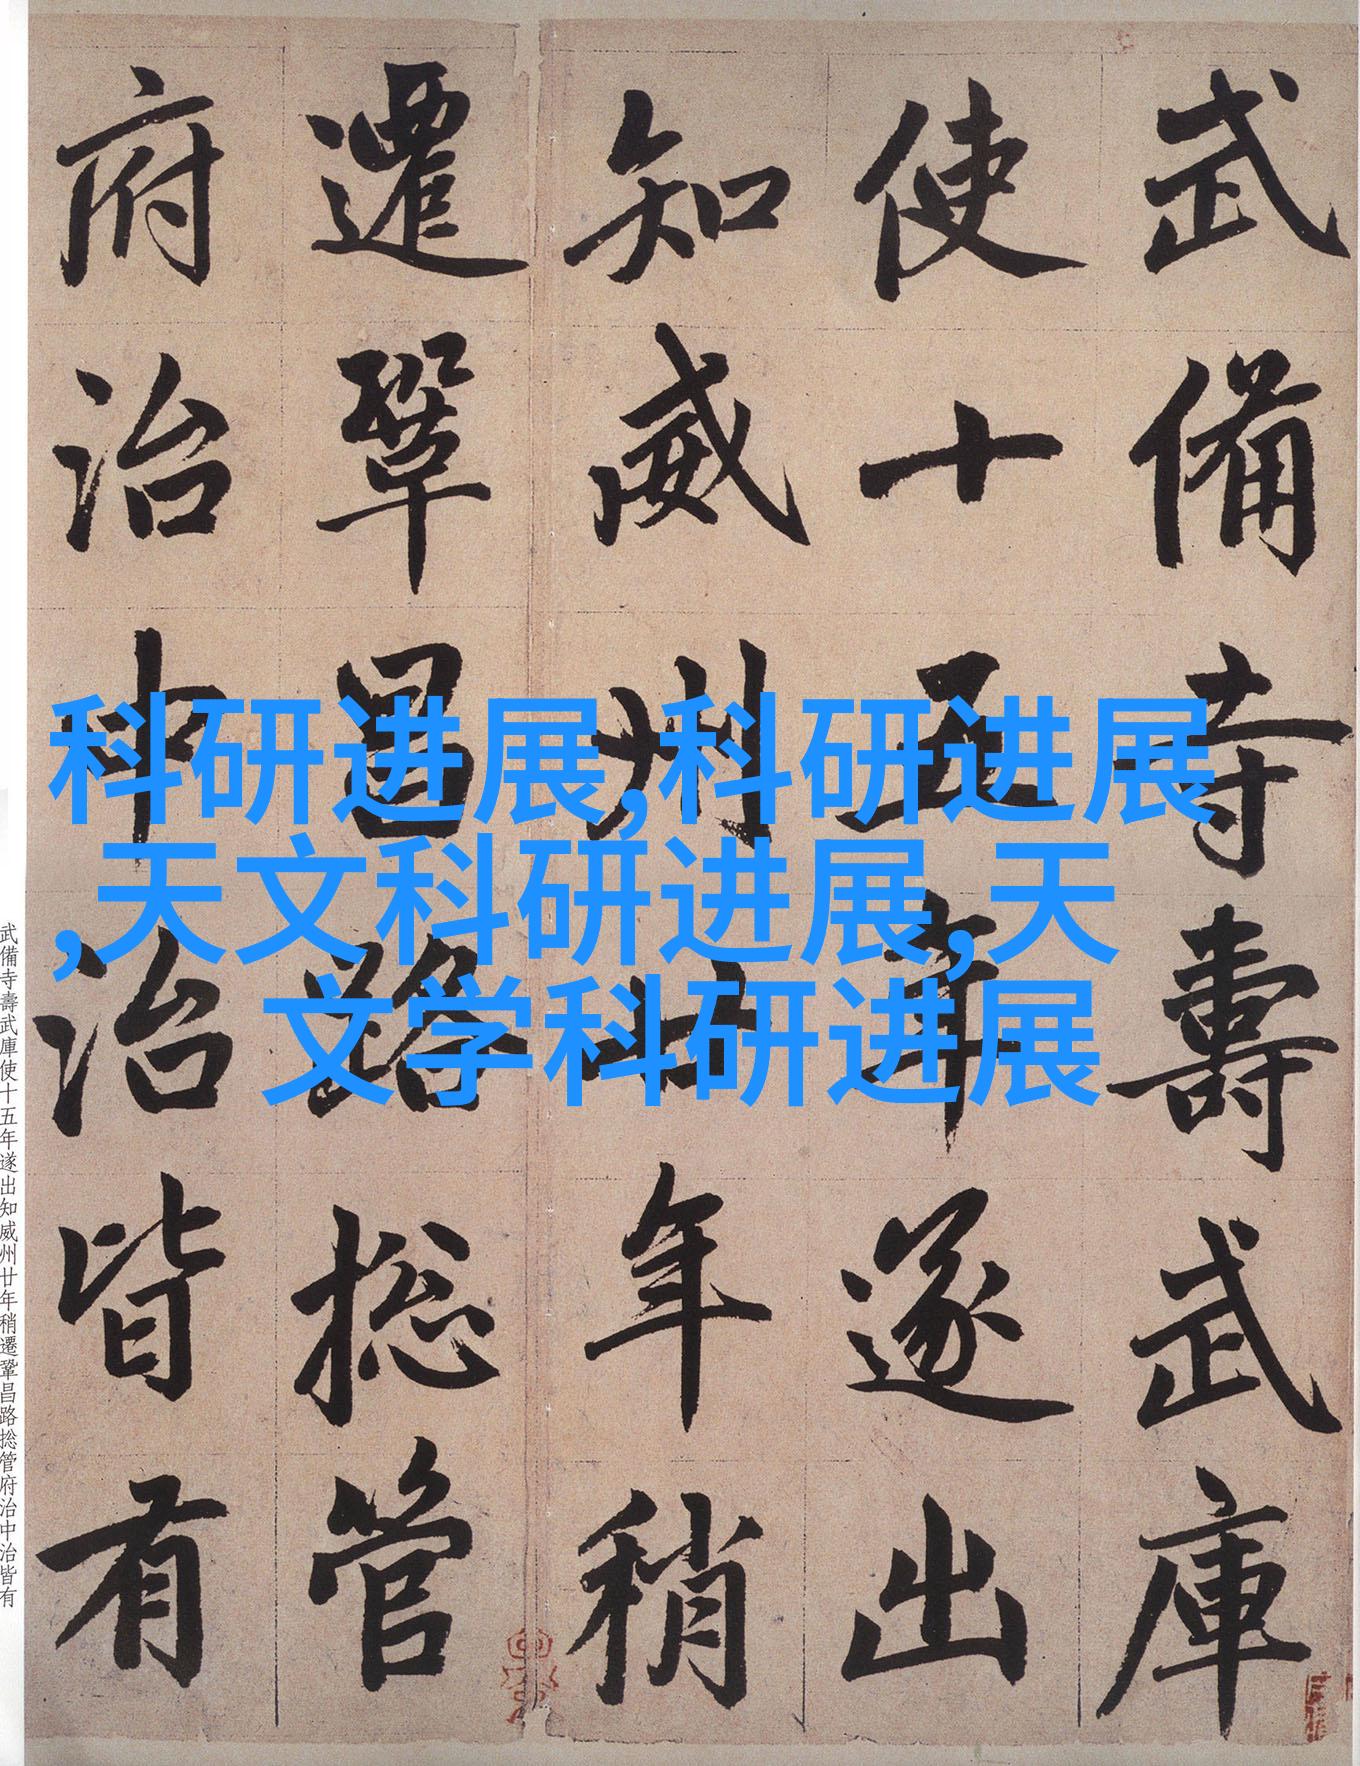 武備寺壽武庫
使十五年遂出
知威州廿年稍
遷鞏昌路捴管
府治中治皆有
科研进展,科研进展
,天文科研进展,天
文学科研进展
武備寺壽武庫使十五年遂出知威州廿年稍遷鞏昌路捴管府治中治皆有